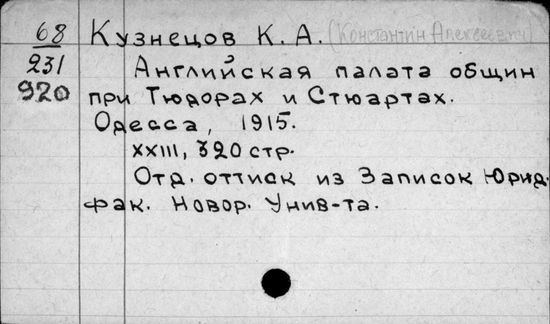 68 Кузнецов К. А. (Константин Алексеевич)
231 Английская палата общин
920 при Тюдорах и Стюартах.
Одесса, 1915.
XXIII, 320 стр.
Отд. оттиск из Записок Юрид.
фак. Новор. Унив-та.